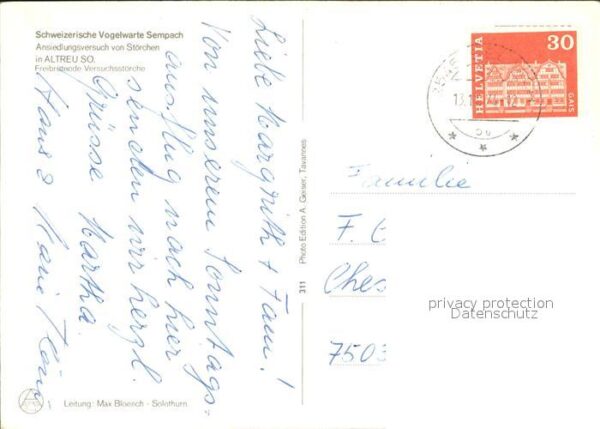 Schweizerische Vogelwarte Sempach
Ansiedlungsversuch von Störchen
in ALTREU SO.
Freibrütende Versuchsstörche
Liebe Margrith + Fam!
Von unserem Sonntags-
ausflug nach hier
senden wir herzl.
Grüsse Martha.
Hans &
Leitung: Max Bloesch - Solothurn
311 Photo Edition A. Geiser, Tavannes
HELVETIA
30
GAIS
Familie
F. G
Ches
7503
privacy protection
Datenschutz